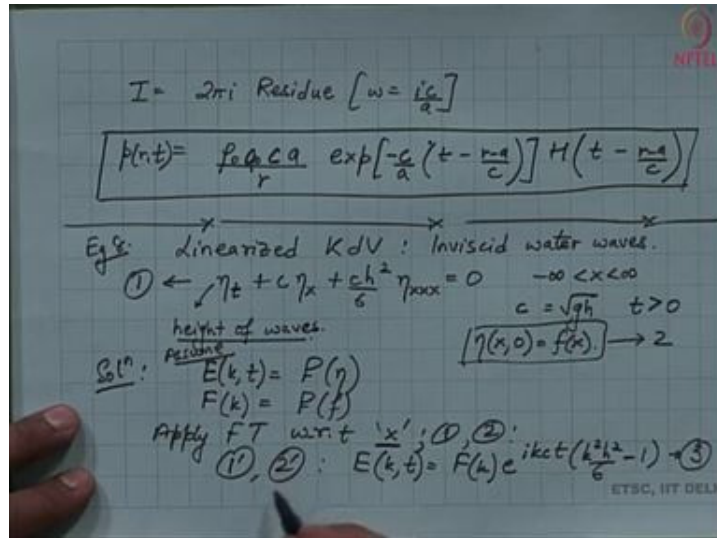 NPTEL
I = 2πi Residue [ω = ic/a]
p(r,t) = ρ₀ a₀ c a / r exp[-c/a (t - (r-a)/c)] H(t - (r-a)/c)
Eg 8: Linearized KdV : Inviscid water waves.
① ← η_t + c η_x + ch²/6 η_xxx = 0 -∞ < x < ∞
c = √gh t > 0
height of waves. η(x,0) = f(x). → 2
Solⁿ: Assume E(k,t) = F(η)
F(k) = F(f)
Apply FT w.r.t 'x' ; ①, ② :
①', ②' : E(k,t) = F(k) e^{ikct(k²h²/6 - 1)} → ③
ETSC, IIT DEL